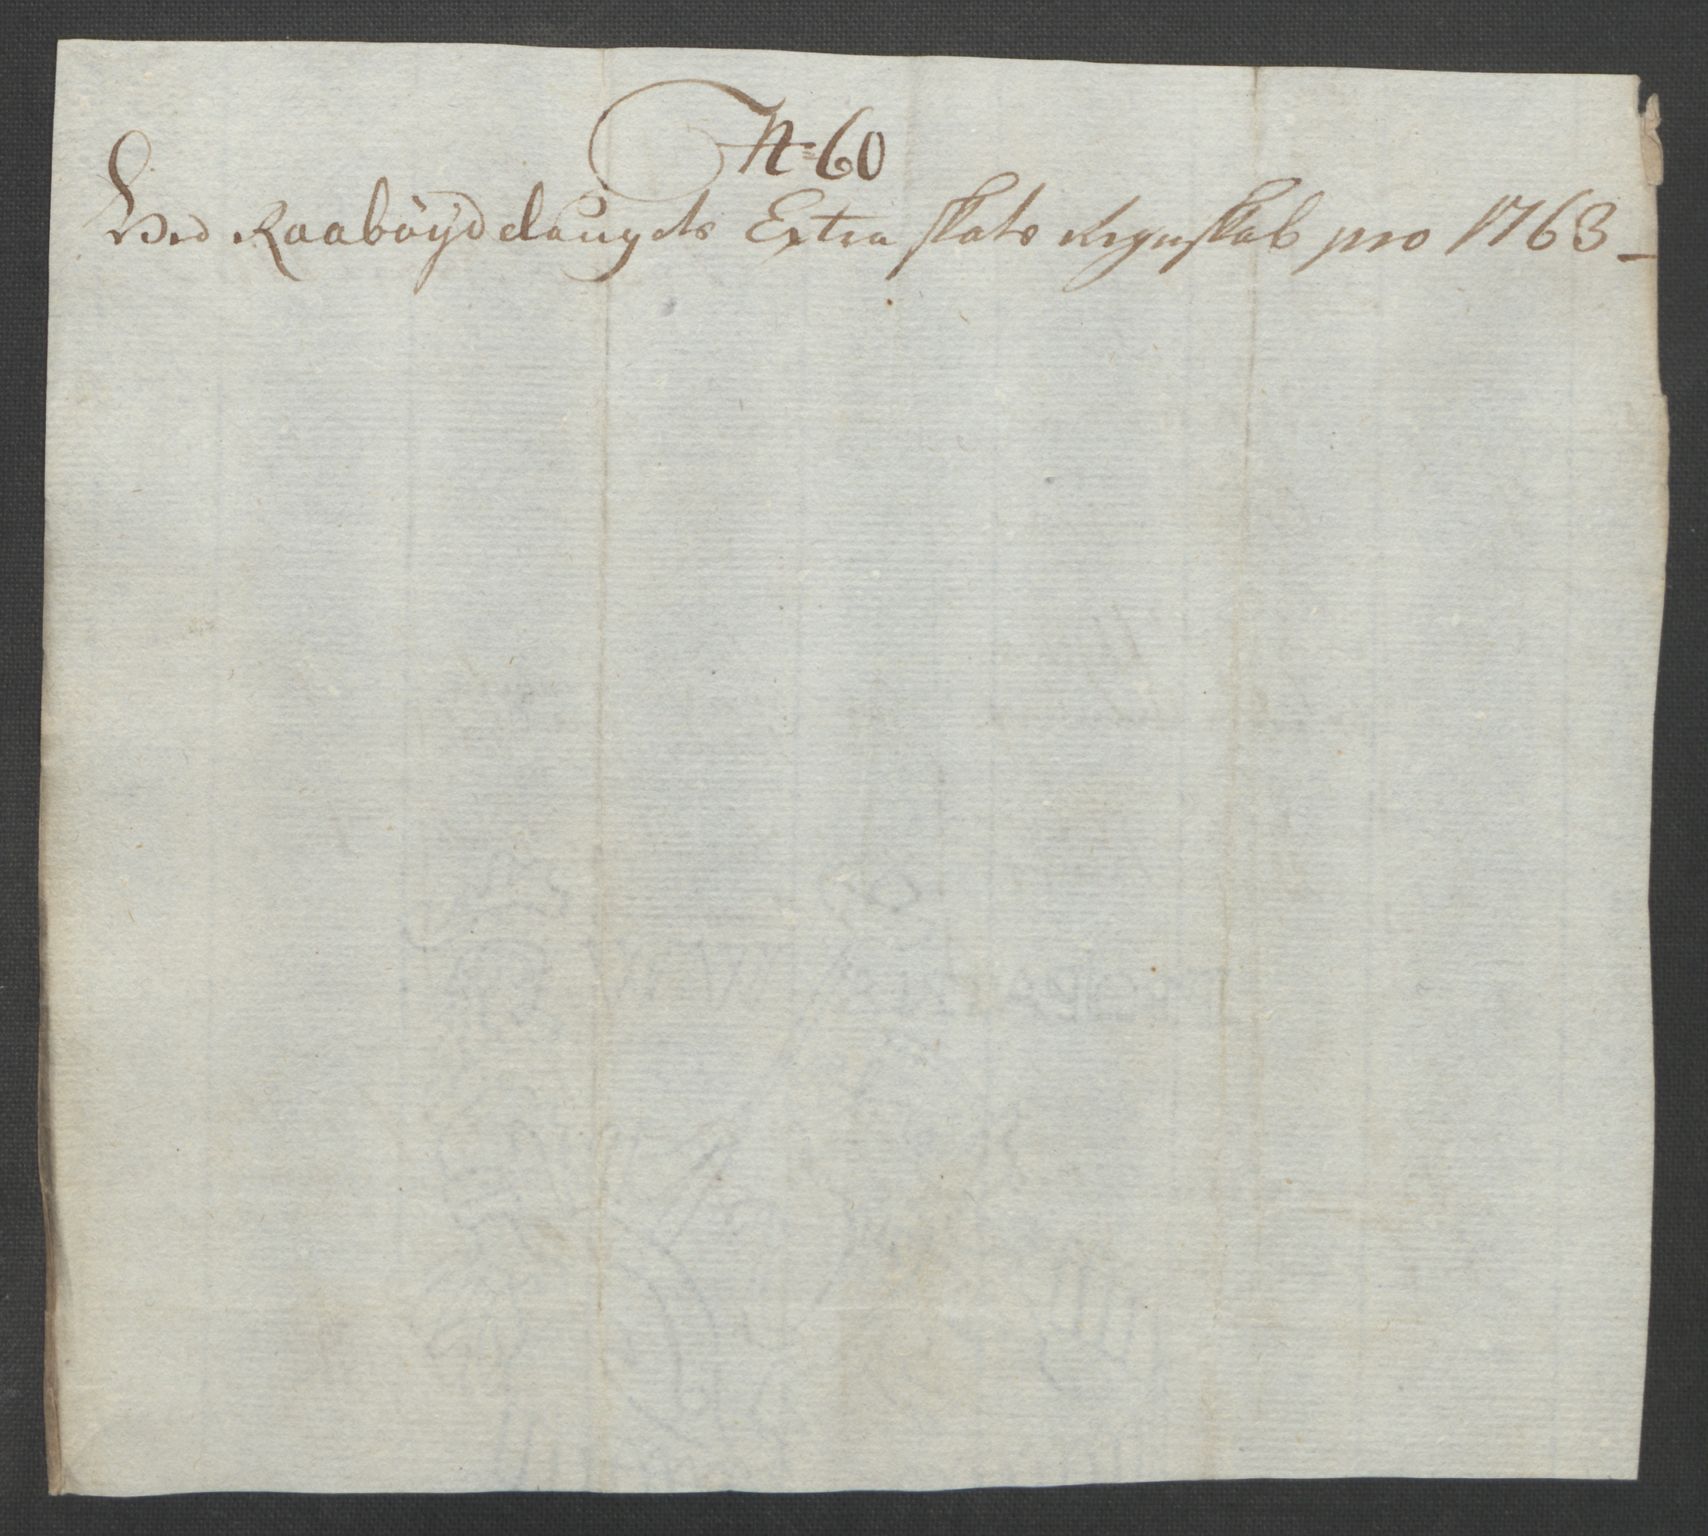 N. 60
Ved Raabøydelaugets Extra skats Regnskab pro 1763